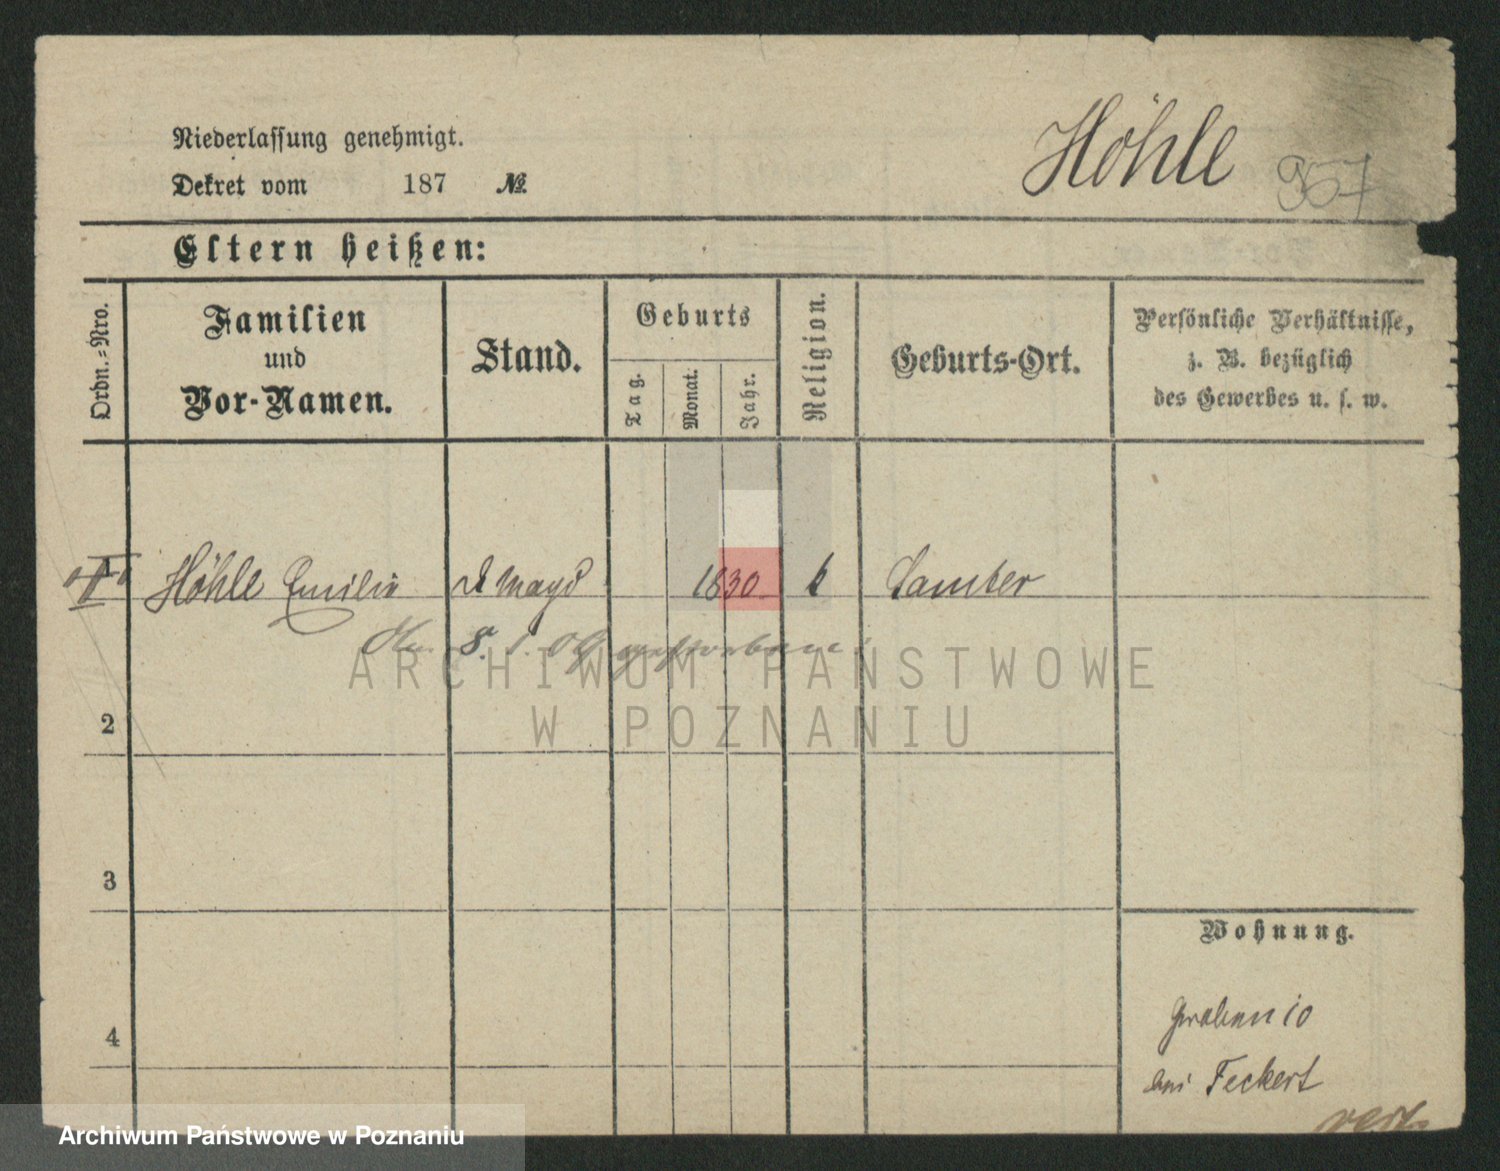 Höhle 957
Niederlassung genehmigt.
Dekret vom 187 №
Eltern heißen:
Ordn.-Nro.
Familien
und
Vor-Namen.
Stand.
Geburts
Tag.
Monat.
Jahr.
Religion.
Geburts-Ort.
Persönliche Verhältnisse,
z. B. bezüglich
des Gewerbes u. s. w.
Höhle Emilie Magd 1830 Samter
8. 1. 09 gestorben
ARCHIWUM PAŃSTWOWE
W POZNANIU
2
3
4
Wohnung.
Graben 10
bei Feckert
Archiwum Państwowe w Poznaniu